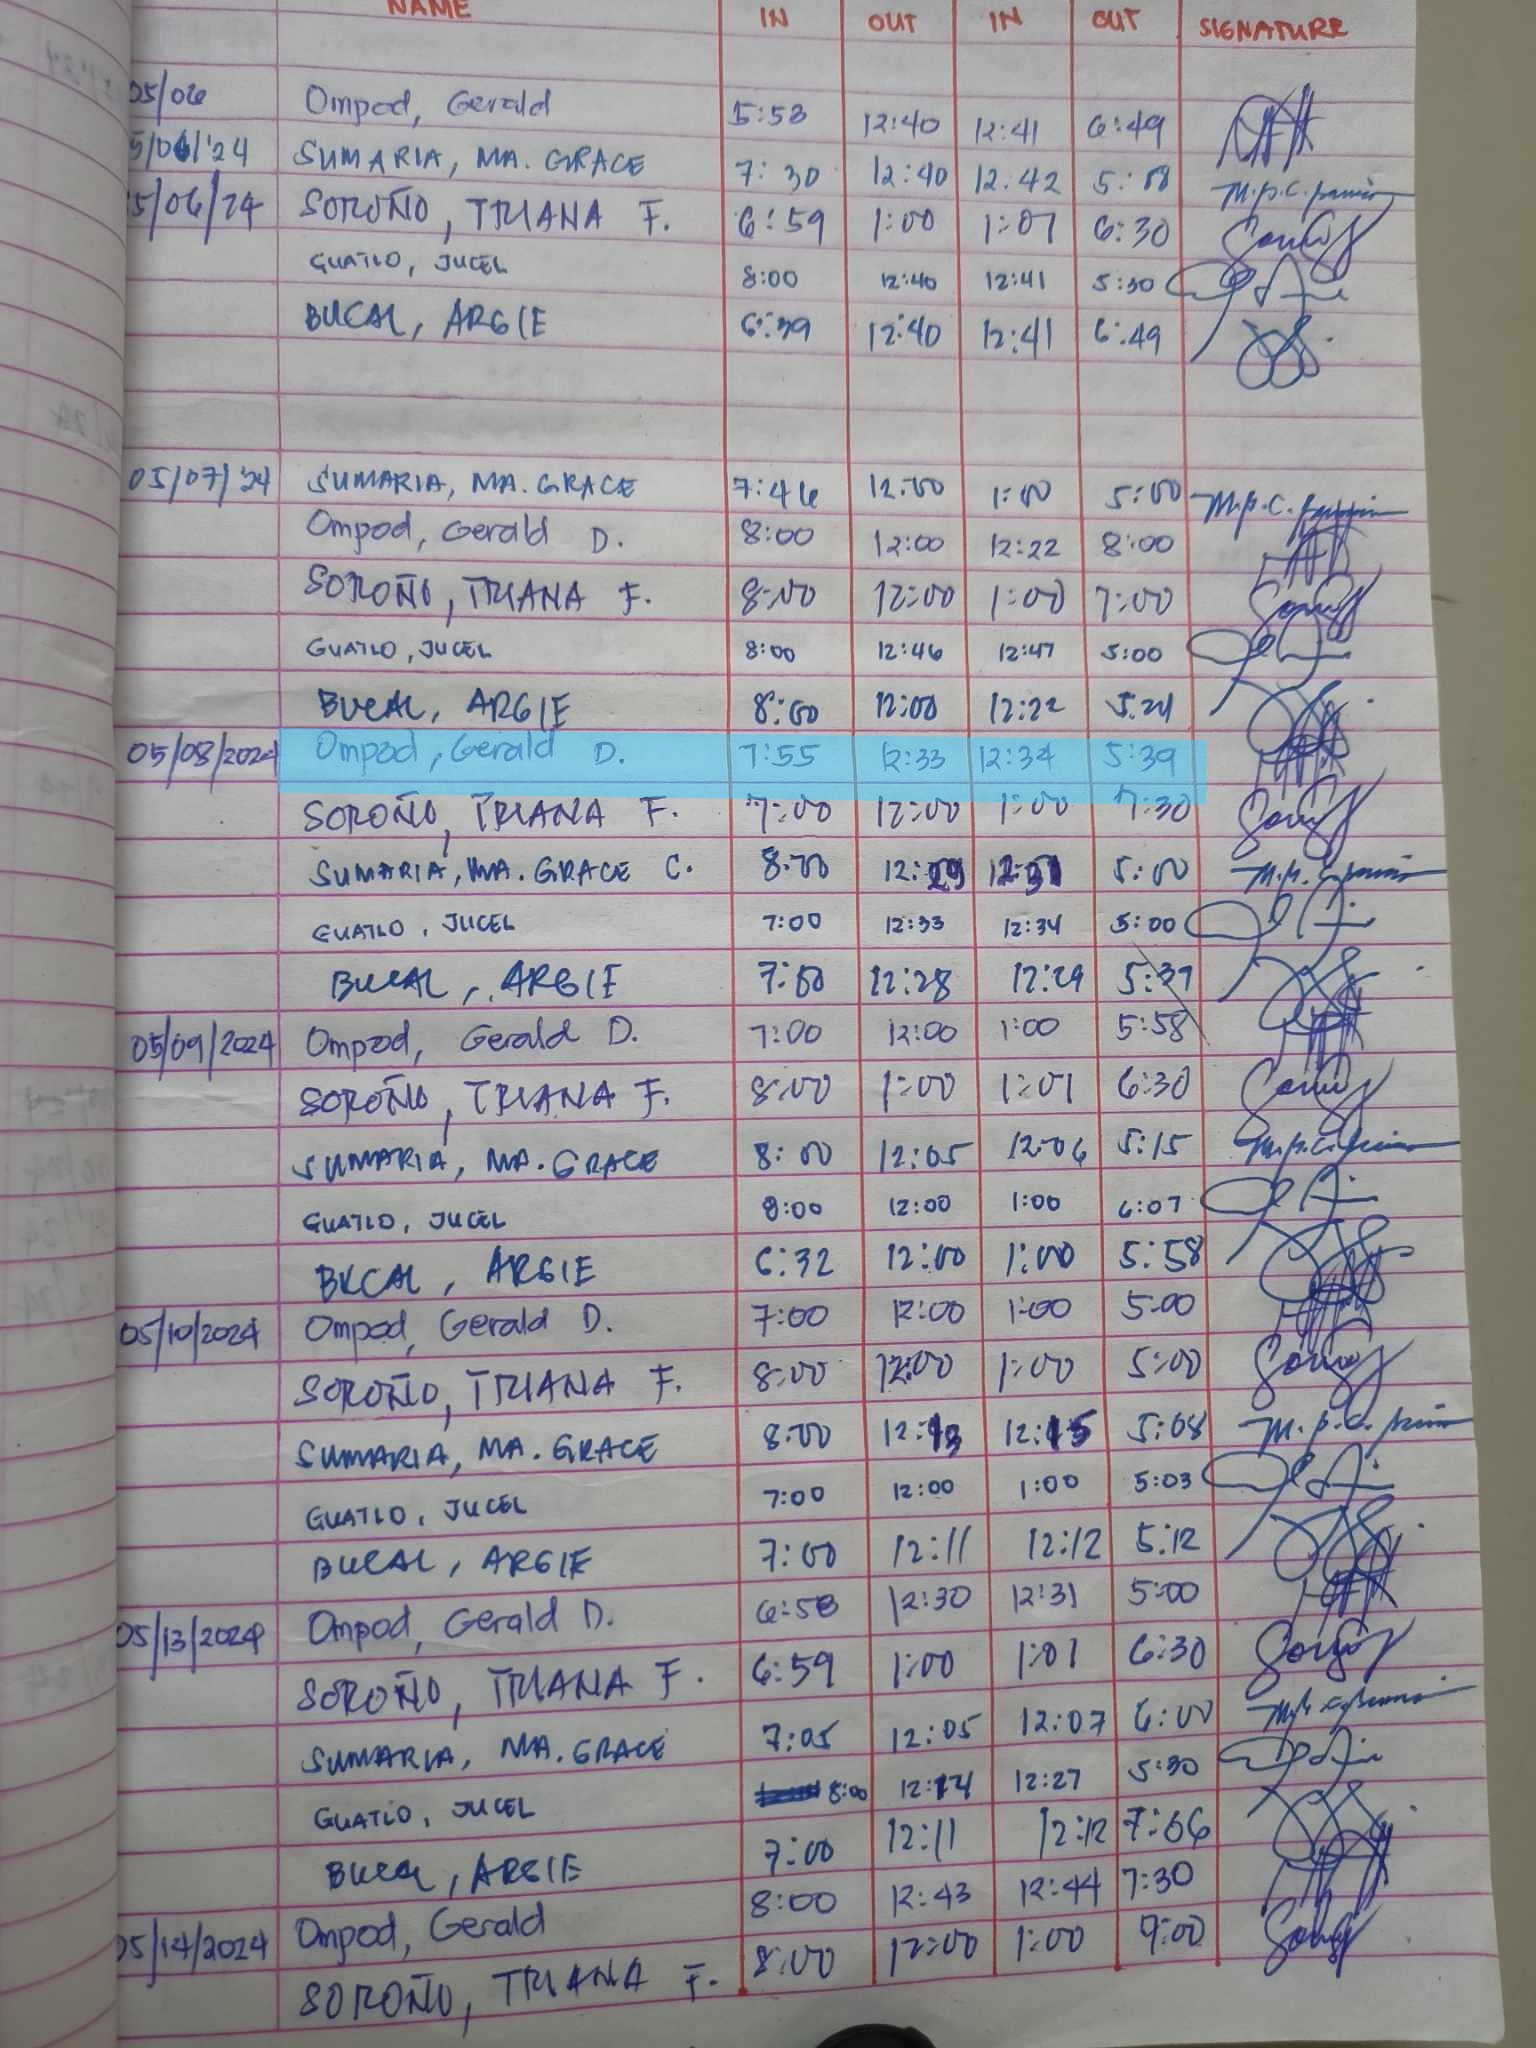 NAME IN OUT IN OUT SIGNATURE
05/06 Ompod, Gerald 5:53 12:40 12:41 6:49
5/06/'24 SUMARIA, MA. GRACE 7:30 12:40 12:42 5:08
5/06/24 SOROÑO, TRIANA F. 6:59 1:00 1:01 6:30
GUATLO, JUCEL 8:00 12:40 12:41 5:30
BUCAL, ARGIE 6:39 12:40 12:41 6:49
05/07/'24 SUMARIA, MA. GRACE 7:46 12:00 1:00 5:00
Ompod, Gerald D. 8:00 12:00 12:22 8:00
SOROÑO, TRIANA F. 8:00 12:00 1:00 7:00
GUATLO, JUCEL 8:00 12:46 12:47 5:00
BUCAL, ARGIE 8:00 12:00 12:22 5:24
05/08/2024 Ompod, Gerald D. 7:55 12:33 12:34 5:39
SOROÑO, TRIANA F. 7:00 12:00 1:00 7:30
SUMARIA, MA. GRACE C. 8:00 12:29 12:31 5:00
GUATLO, JUCEL 7:00 12:33 12:34 5:00
BUCAL, ARGIE 7:00 12:28 12:29 5:39
05/09/2024 Ompod, Gerald D. 7:00 12:00 1:00 5:58
SOROÑO, TRIANA F. 8:00 1:00 1:01 6:30
SUMARIA, MA. GRACE 8:00 12:05 12:06 5:15
GUATLO, JUCEL 8:00 12:00 1:00 6:07
BUCAL, ARGIE 6:32 12:00 1:00 5:58
05/10/2024 Ompod, Gerald D. 7:00 12:00 1:00 5:00
SOROÑO, TRIANA F. 8:00 12:00 1:00 5:00
SUMARIA, MA. GRACE 8:00 12:13 12:15 5:08
GUATLO, JUCEL 7:00 12:00 1:00 5:03
BUCAL, ARGIE 7:00 12:11 12:12 5:12
05/13/2024 Ompod, Gerald D. 6:58 12:30 12:31 5:00
SOROÑO, TRIANA F. 6:59 1:00 1:01 6:30
SUMARIA, MA. GRACE 7:05 12:05 12:07 6:00
GUATLO, JUCEL 8:00 12:27 5:30
BUCAL, ARGIE 7:00 12:11 12:12 7:06
05/14/2024 Ompod, Gerald 8:00 12:43 12:44 7:30
SOROÑO, TRIANA F. 8:00 12:00 1:00 9:00